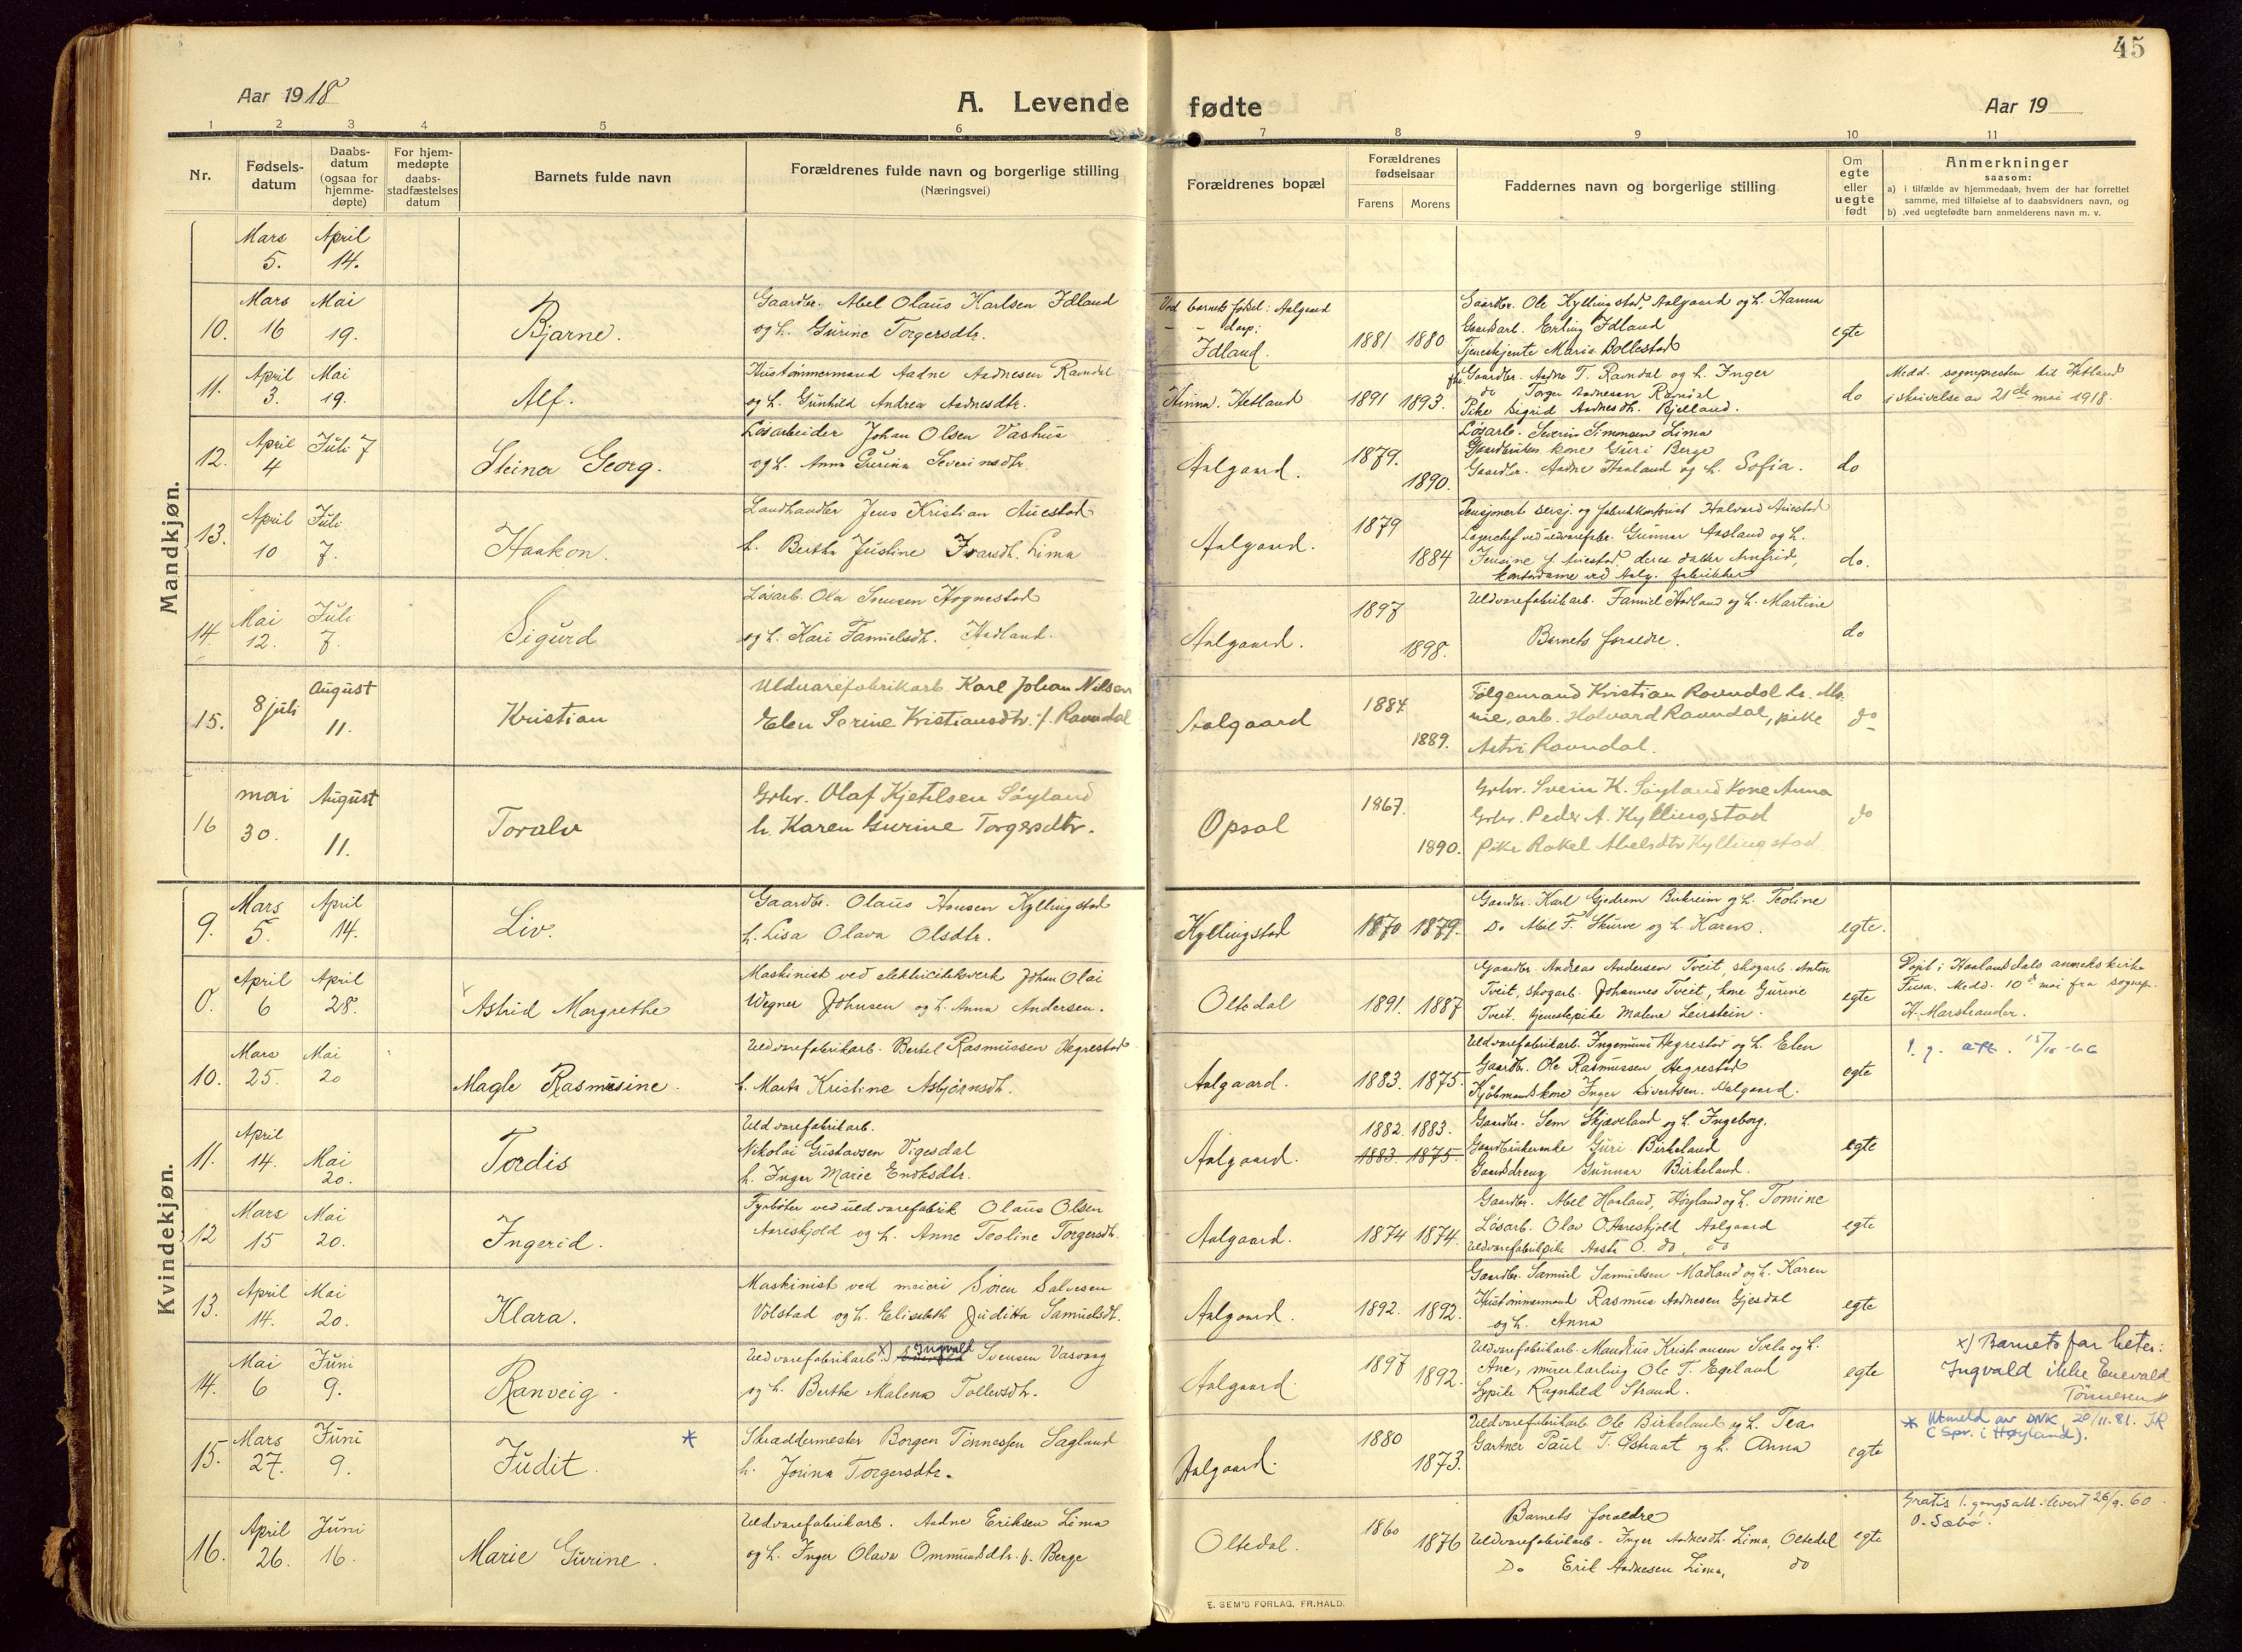 45
Aar 1918
A. Levende fødte
Aar 19
1 2 3 4 5 6 7 8 9 10 11
Nr.
Fødsels-
datum
Daabs-
datum
(ogsaa for
hjemme-
døpte)
For hjem-
medøpte
daabs-
stadfæstelses
datum
Barnets fulde navn
Forældrenes fulde navn og borgerlige stilling
(Næringsvei)
Forældrenes bopæl
Forældrenes
fødselsaar
Farens Morens
Faddernes navn og borgerlige stilling
Om
egte
eller
uegte
født
Anmerkninger
saasom:
a) i tilfælde av hjemmedaab, hvem der har forrettet
samme, med tilføielse af to daabsvidners navn, og
b) ved uegtefødte barn anmelderens navn m. v.
Mandkjøn.
Mars April
5. 14.
10. Mars 16 Mai 19. Bjarne.
Gaardbr. Abel Olaus Karlsen Idland
og h. Gurine Torgersdtr.
Ved barnets fødsel: Aalgaard
— — daap:
Idland.
1881 1880
Gaardbr. Ole Kyllingstad, Aalgaard og h. Hanna
Gaardarb. Erling Idland
Tjenestejente Maria Bollestad
egte
11. April 3. Mai 19. Alf.
Hustømmermand Aadne Aadnesen Ravndal
og h. Gunhild Andrea Aadnesdtr.
Hinna. Hetland
1891 1893.
Gaardbr. Aadne T. Ravndal og h. Inger
do Torger Aadnesen Ravndal
Pike Sigrid Aadnesdh. Bjelland.
do
Medd. sognepresten til Hetland
i skrivelse av 21de mai 1918.
12. April 4 Juli 7 Steinar Georg.
Løsarbeider Johan Olsen Vashus
og h. Anna Gurina Severinsdtr.
Aalgaard.
1879. 1890.
Løsarb. Severin Simonsen Lima
Gaardbrukers kone Guri Berge
Gaardbr. Aadne Haaland og h. Sofia.
do
13. April 10 Juli 7. Haakon.
Landhandler Jens Kristian Auestad
h. Bertha Justine Ivarsdh. Lima
Aalgaard.
1879 1884
Pensjonert sersj. og fabrikkontorist Halvard Auestad
Lagerchef ved uldvarefabr. Gunnar Aasland og h.
Jensine f. Auestad, deres datter Arnfrid,
kontordame ved Aalg. fabrikker
do.
14. Mai 12. Juli 7. Sigurd
Løsarb. Ola Svensen Hognestad
og h. Kari Tamielsdh. Hadland.
Aalgaard.
1897 1898.
Uldvarefabrikarb. Tamiel Hadland og h. Martine
Barnets foraldre.
do
15. 8 juli August 11. Kristian
Uldvarefabrikarb. Karl Johan Nilsen
Elen Serine Kristiansdtr. f. Ravndal
Aalgaard
1884 1889.
Følgemand Kristian Ravndal h. Ma-
rie, arb. Halvard Ravndal, pike
Astri Ravndal.
do
16 mai 30. August 11. Toralv
Grbr. Olaf Kjetilsen Søyland
h. Karen Gurine Torgersdtr.
Opsal
1867. 1890.
Grbr. Svein K. Søyland kone Anna
Grbr. Peder A. Kyllingstad
pike Rakel Abelsdtr Kyllingstad
do
Kvindekjøn.
9. Mars 5. April 14. Liv.
Gaardbr. Olaus Hansen Kyllingstad
h. Lisa Olava Olsdtr.
Kyllingstad
1870 1879.
Gaardbr. Karl Gjedrem Birkreim og h. Teoline
Do Abel F. Skurve og h. Karen.
egte.
0. April 6 April 28. Astrid Margrethe
Maskinist ved elektricitetsverk Johan Olai
Wegner Johnsen og h. Anna Andersen.
Oltedal
1891. 1887
Gaardbr. Andreas Andersen Tveit, skogarb. Anton
Tveit, skogarb. Johannes Tveit, kone Gurine
Tveit, tjenestepike Malene Leirstein.
egte
Døpt i Haalandsdals annekskirke
Fusa. Medd. 10de mai fra sognepr.
H. Marstrander.
10. Mars 25. Mai 20 Magle Rasmusine.
Uldvarefabrikarb. Bertel Rasmussen Hegrestad
h. Marta Kristine Asbjørnsdh.
Aalgaard.
1883. 1875.
Uldvarefabrikarb. Ingemund Hegrestad og h. Elen
Gaardb. Ole Rasmussen Hegrestad
Kjøbmandskone Inger Sivertsen. Aalgaard.
egte
1. g. att. 15/10-66
11. April 14. Mai 20. Tordis
Uldvarefabrikarb.
Nikolai Gustavsen Vigesdal
h. Inger Marie Eriksdtr.
Aalgaard.
1882. 1883.
1883. 1875.
Gaardbr. Sem Skjæveland og h. Ingeborg.
Gaardbrukerenke Guri Birkeland
Gaardsdreng Gunnar Birkeland.
egte
12 Mars 15 Mai 20. Ingerid.
Fyrbøter ved uldvarefabrik Olaus Olsen
Aareskjold og h. Anne Teoline Torgersdh.
Aalgaard.
1874 1874.
Gaardbr. Abel Haaland, Høyland og h. Tomine
Løsarb. Olav O. Aareskjold Aalgaard
Uldvarefabrikpike Aasta O. do, do
egte
13. April 14. Mai 20. Klara.
Maskinist ved meieri Sören Salvesen
Volstad og h. Elisabeth Juditta Samuelsdt.
Aalgaard.
1892. 1892.
Gaardbr. Samuel Samuelsen Madland og h. Karen
Hustømmermand Rasmus Aadnesen Gjesdal
og h. Anna
egte
14. Mai 6 Juni 9. Ranveig.
Uldvarefabrikarb. x) Ingvald Svensen Vasvaag
og h. Berthe Malena Tollevsdh.
Aalgaard.
1897 1892.
Uldvarefabrikarb. Maudius Kristiansen Svela og h.
Ane, murerlærling Ole T. Egeland
Sypike Ragnhild Strand.
egte
x) Barnets far heter:
Ingvald ikke Enevald
Tönnesen
15. Mars 27. Juni 9. Judit. *
Skræddermester Borgen Tønnessen Sagland
h. Jorina Torgersdtr.
Aalgaard.
1880 1873.
Uldvarefabrikarb. Ole Birkeland og h. Tea
Gartner Paul T. Østraat og h. Anna
egte
* Utmeld av DNK, 20/11.81. JR
(Spr. i Høyland).
16. April 26. Juni 16. Marie Gurine.
Uldvarefabrikarb. Aadne Eriksen Lima
og h. Inger Olava Ommundsdtr. f. Berge
Oltedal.
1860 1876
Barnets foraldre
Uldvarefabrikarb. Inger Aadnesdh. Lima, Oltedal
Do Erik Aadnesen Lima, do
egte
Gratis 1. gangsatt. levert 26/9.60.
O. Sæbø.
E. SEM'S FORLAG, FR.HALD.